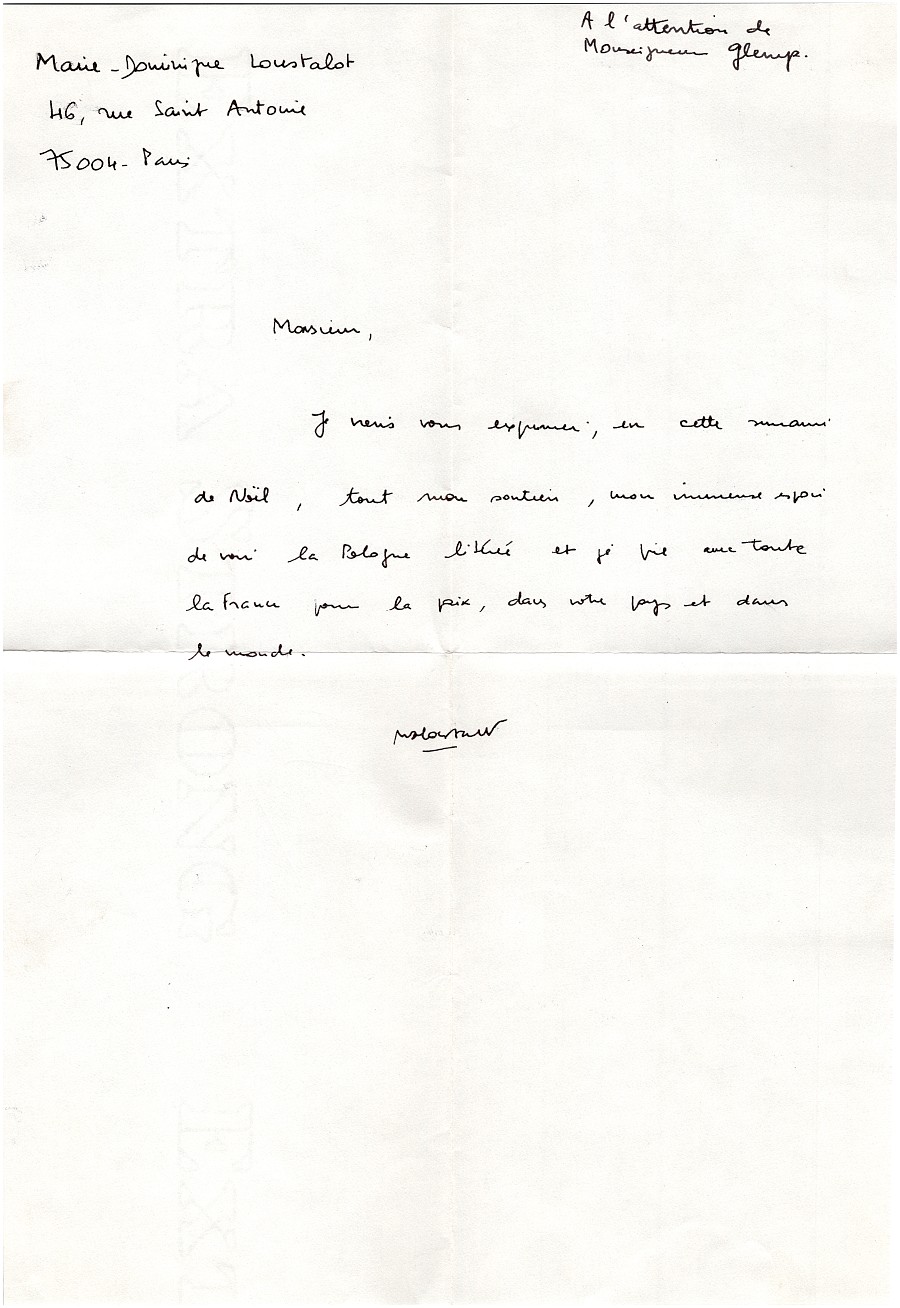 Marie-Dominique Loustalot
46, rue Saint Antoine
75004 - Paris
A l'attention de
Monseigneur Glemp.
Monsieur,
Je viens vous exprimer, en cette semaine
de Noël, tout mon soutien, mon immense espoir
de voir la Pologne libérée et je prie avec toute
la France pour la paix, dans votre pays et dans
le monde.